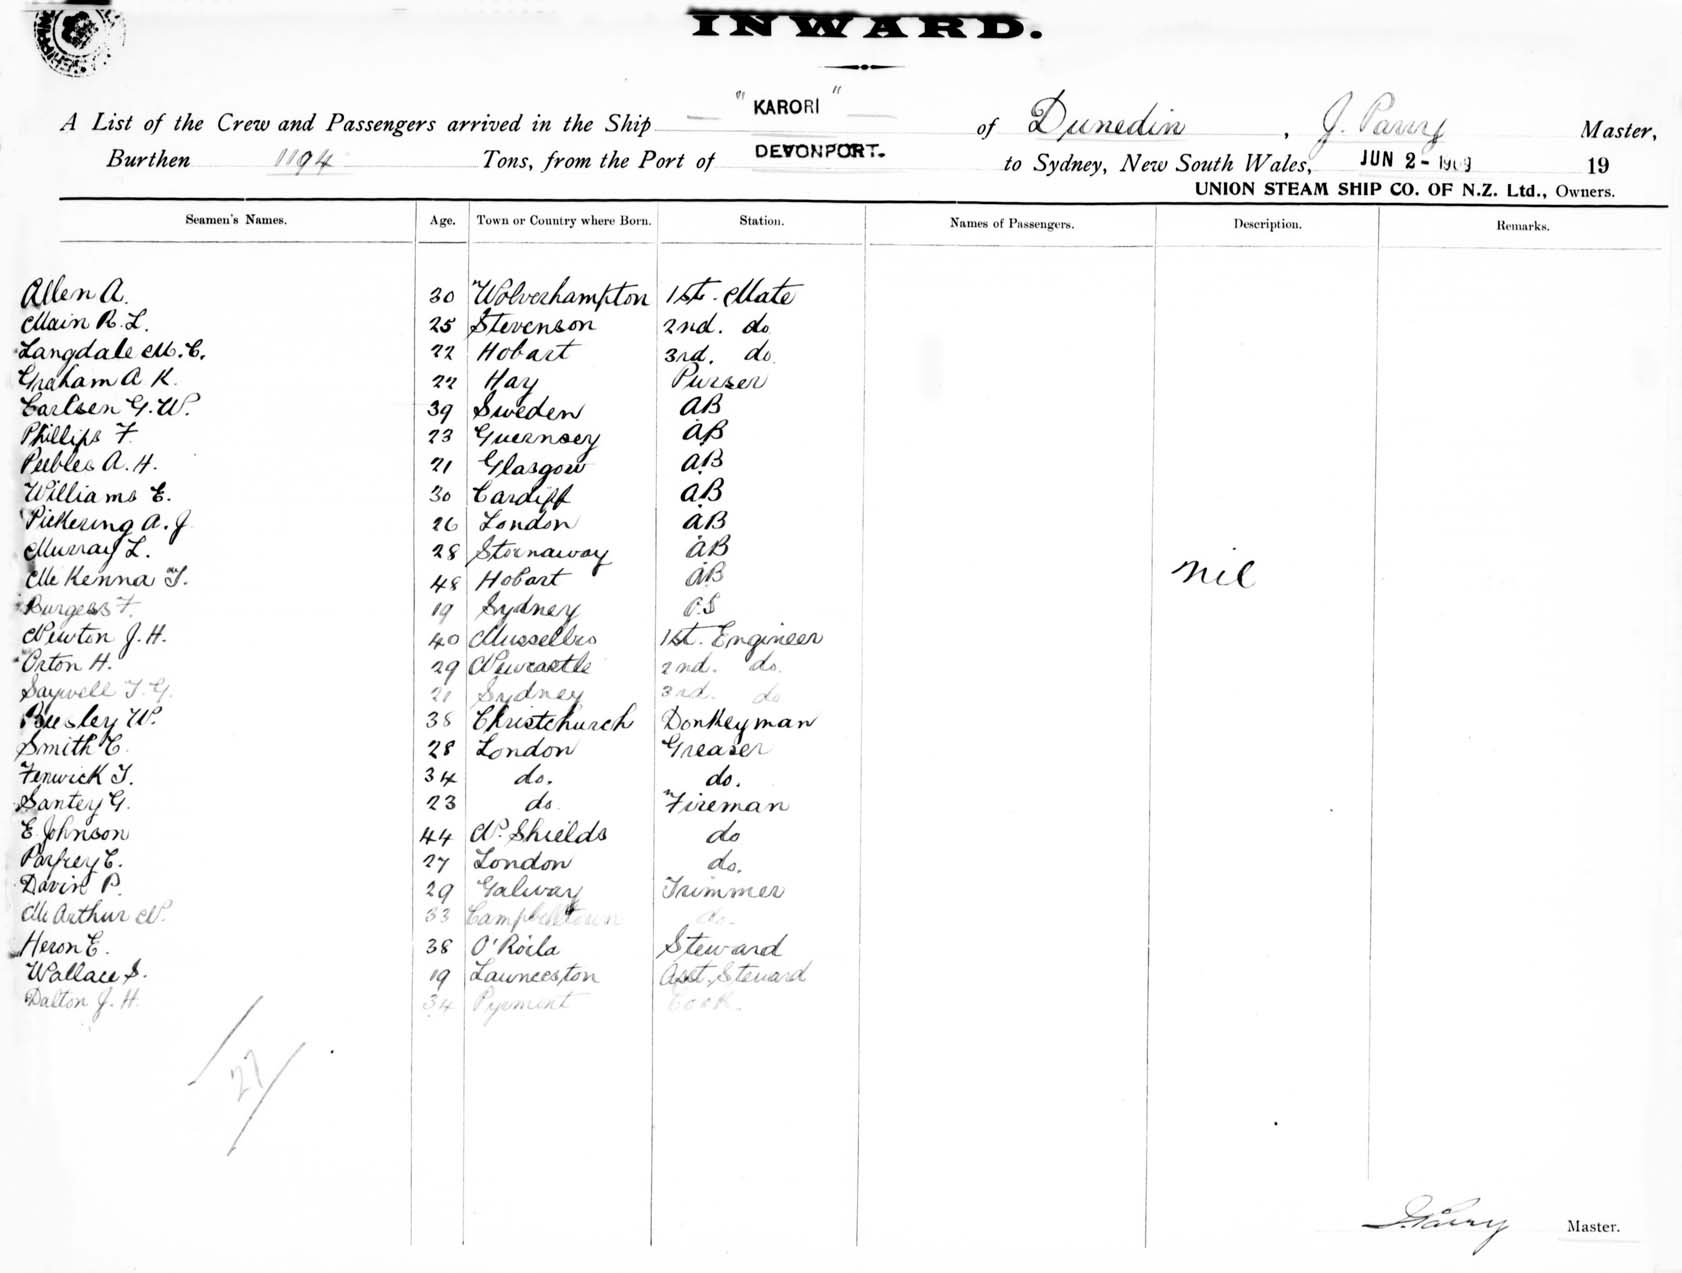 INWARD.
A List of the Crew and Passengers arrived in the Ship "KARORI" of Dunedin, J. Parry Master,
Burthen 1194 Tons, from the Port of DEVONPORT. to Sydney, New South Wales, JUN 2 - 1909 19
UNION STEAM SHIP CO. OF N.Z. Ltd., Owners.
Seamen's Names. Age. Town or Country where Born. Station. Names of Passengers. Description. Remarks.
Allen A. 30 Wolverhampton 1st. Mate
Main R. L. 25 Stevenson 2nd. do
Langdale M. C. 22 Hobart 3rd. do.
Graham A K. 22 Hay Purser
Carlsen G. W. 39 Sweden AB
Phillips F. 23 Guernsey AB
Peebles A. H. 21 Glasgow AB
Williams E. 30 Cardiff AB
Pickering A. J. 26 London AB
Murray L. 28 Stornaway AB
McKenna T. 48 Hobart AB nil
Burgess F. 19 Sydney O.S
Newton J. H. 40 1st. Engineer
Orton H. 29 Newcastle 2nd. do.
Saywell T. G. 21 Sydney 3rd. do
Beesley W. 38 Christchurch Donkeyman
Smith C. 28 London Greaser
Fenwick T. 34 do. do.
Santey G. 23 do. Fireman
E. Johnson 44 N. Shields do
Parfrey C. 27 London do.
Davin P. 29 Galway Trimmer
McArthur N. 33 Campbeltown do.
Heron C. 38 Steward
Wallace S. 19 Launceston Asst. Steward
Dalton J. H. 34 Pyrmont Cook.
27
J. Parry Master.